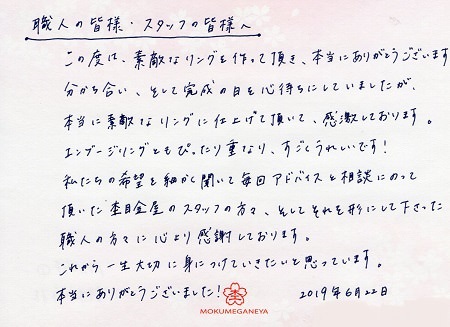 職人の皆様・スタッフの皆様へ
この度は、素敵なリングを作って頂き、本当にありがとうございます
分かち合い、そして完成の日を心待ちにしていましたが、
本当に素敵なリングに仕上げて頂いて、感激しております。
エンゲージリングともぴったり重なり、すごくうれしいです！
私たちの希望を細かく聞いて毎回アドバイスと相談にのって
頂いた杢目金屋のスタッフの方々、そしてそれを形にして下さった
職人の方々に心より感謝しております。
これから一生大切に身につけていきたいと思っています。
本当にありがとうございました！
MOKUMEGANEYA
2019年6月22日